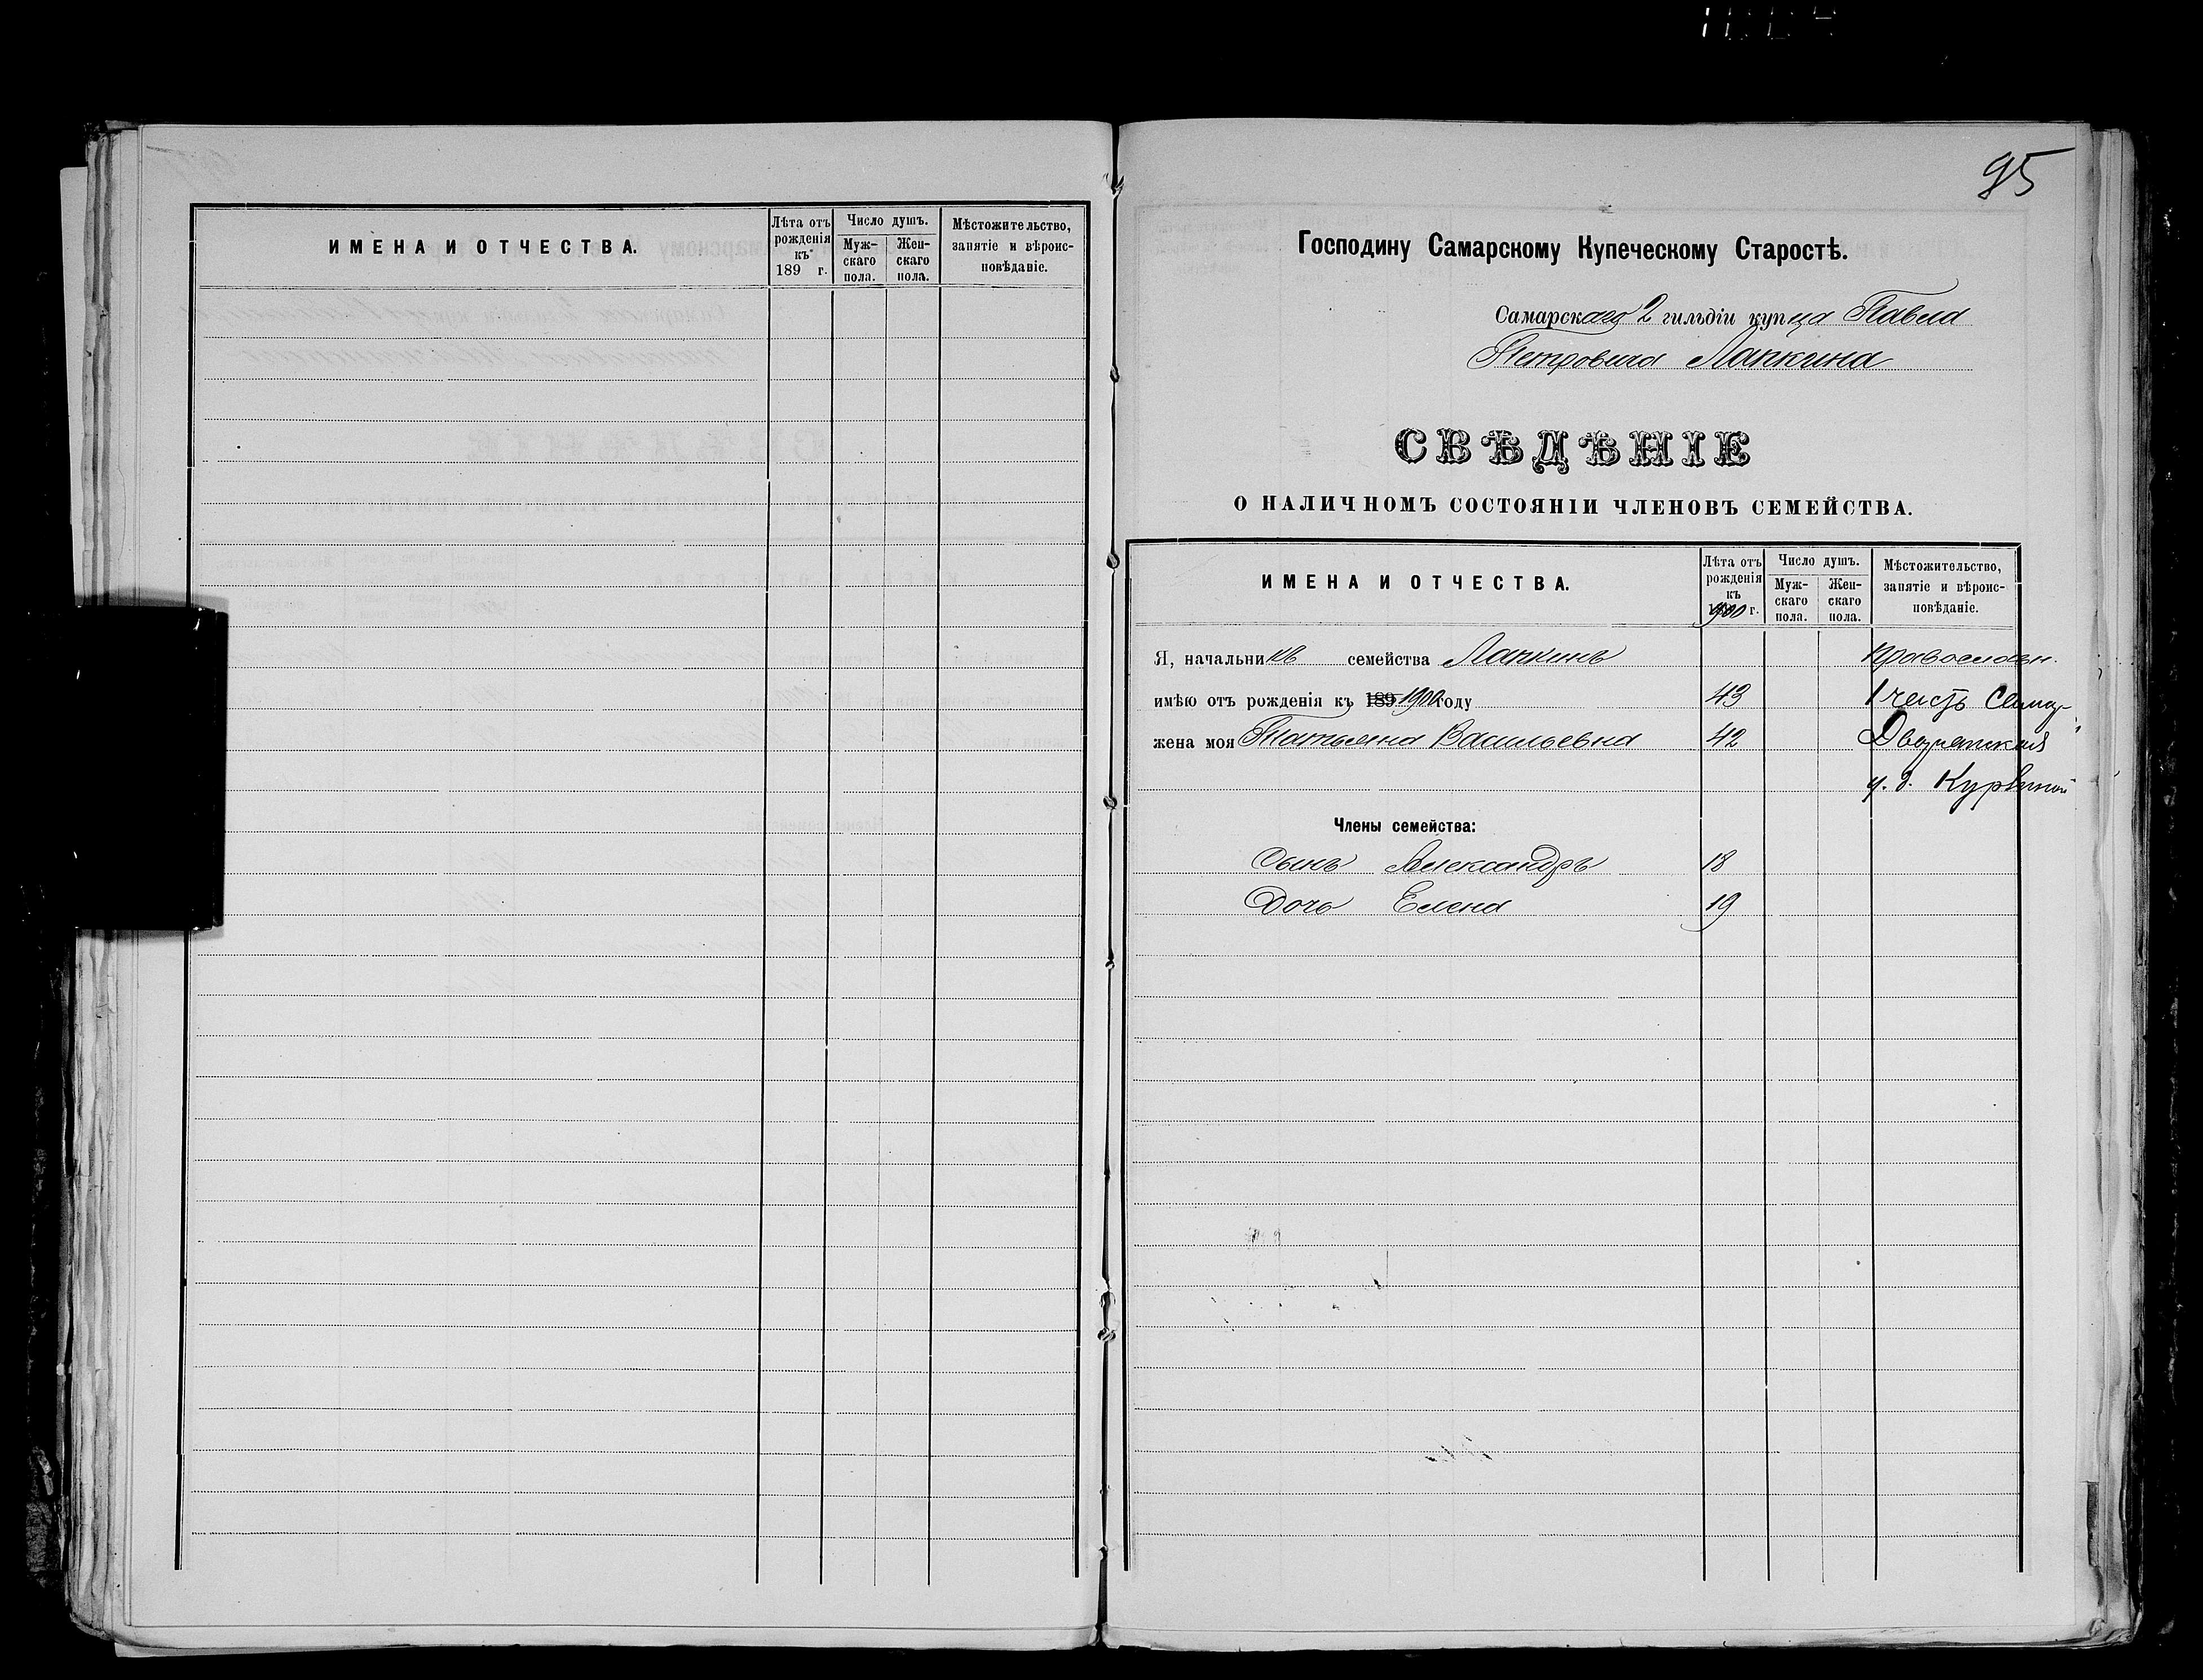 ИМЕНА И ОТЧЕСТВА.
Лѣта отъ рожденія къ 189 г.
Число душъ.
Мужскаго пола.
Женскаго пола.
Мѣстожительство, занятіе и вѣроисповѣданіе.
95
Господину Самарскому Купеческому Старостѣ.
Самарскаго 2 гильдіи купца Павла
Петровича Лапкина
СВѢДѢНІЕ
О НАЛИЧНОМЪ СОСТОЯНІИ ЧЛЕНОВЪ СЕМЕЙСТВА.
ИМЕНА И ОТЧЕСТВА.
Лѣта отъ рожденія къ 1900 г.
Число душъ.
Мужскаго пола.
Женскаго пола.
Мѣстожительство, занятіе и вѣроисповѣданіе.
Я, начальникъ семейства Лапкинъ православн.
имѣю отъ рожденія къ 189 1900 году 43 1 часть Самар
жена моя Татьяна Васильевна 42 Дворянская
Члены семейства:
Сынъ Александръ 18
Дочь Елена 19